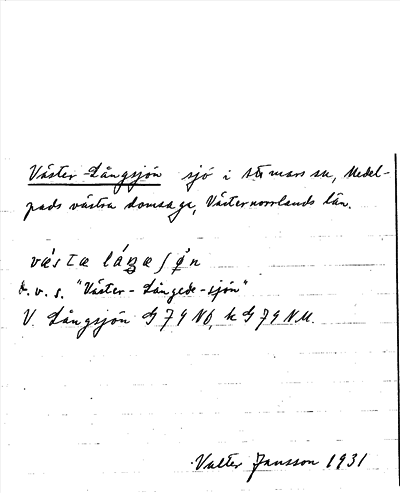 Väster-Långsjön sjö i Stöde sn, Medel-
pads västra domsaga, Västernorrlands län.
västa låŋaʃön
d.v.s. "Väster-Långede-sjön"
V. Långsjön G 79 NÖ, k G 79 NM.
Valter Jansson 1931